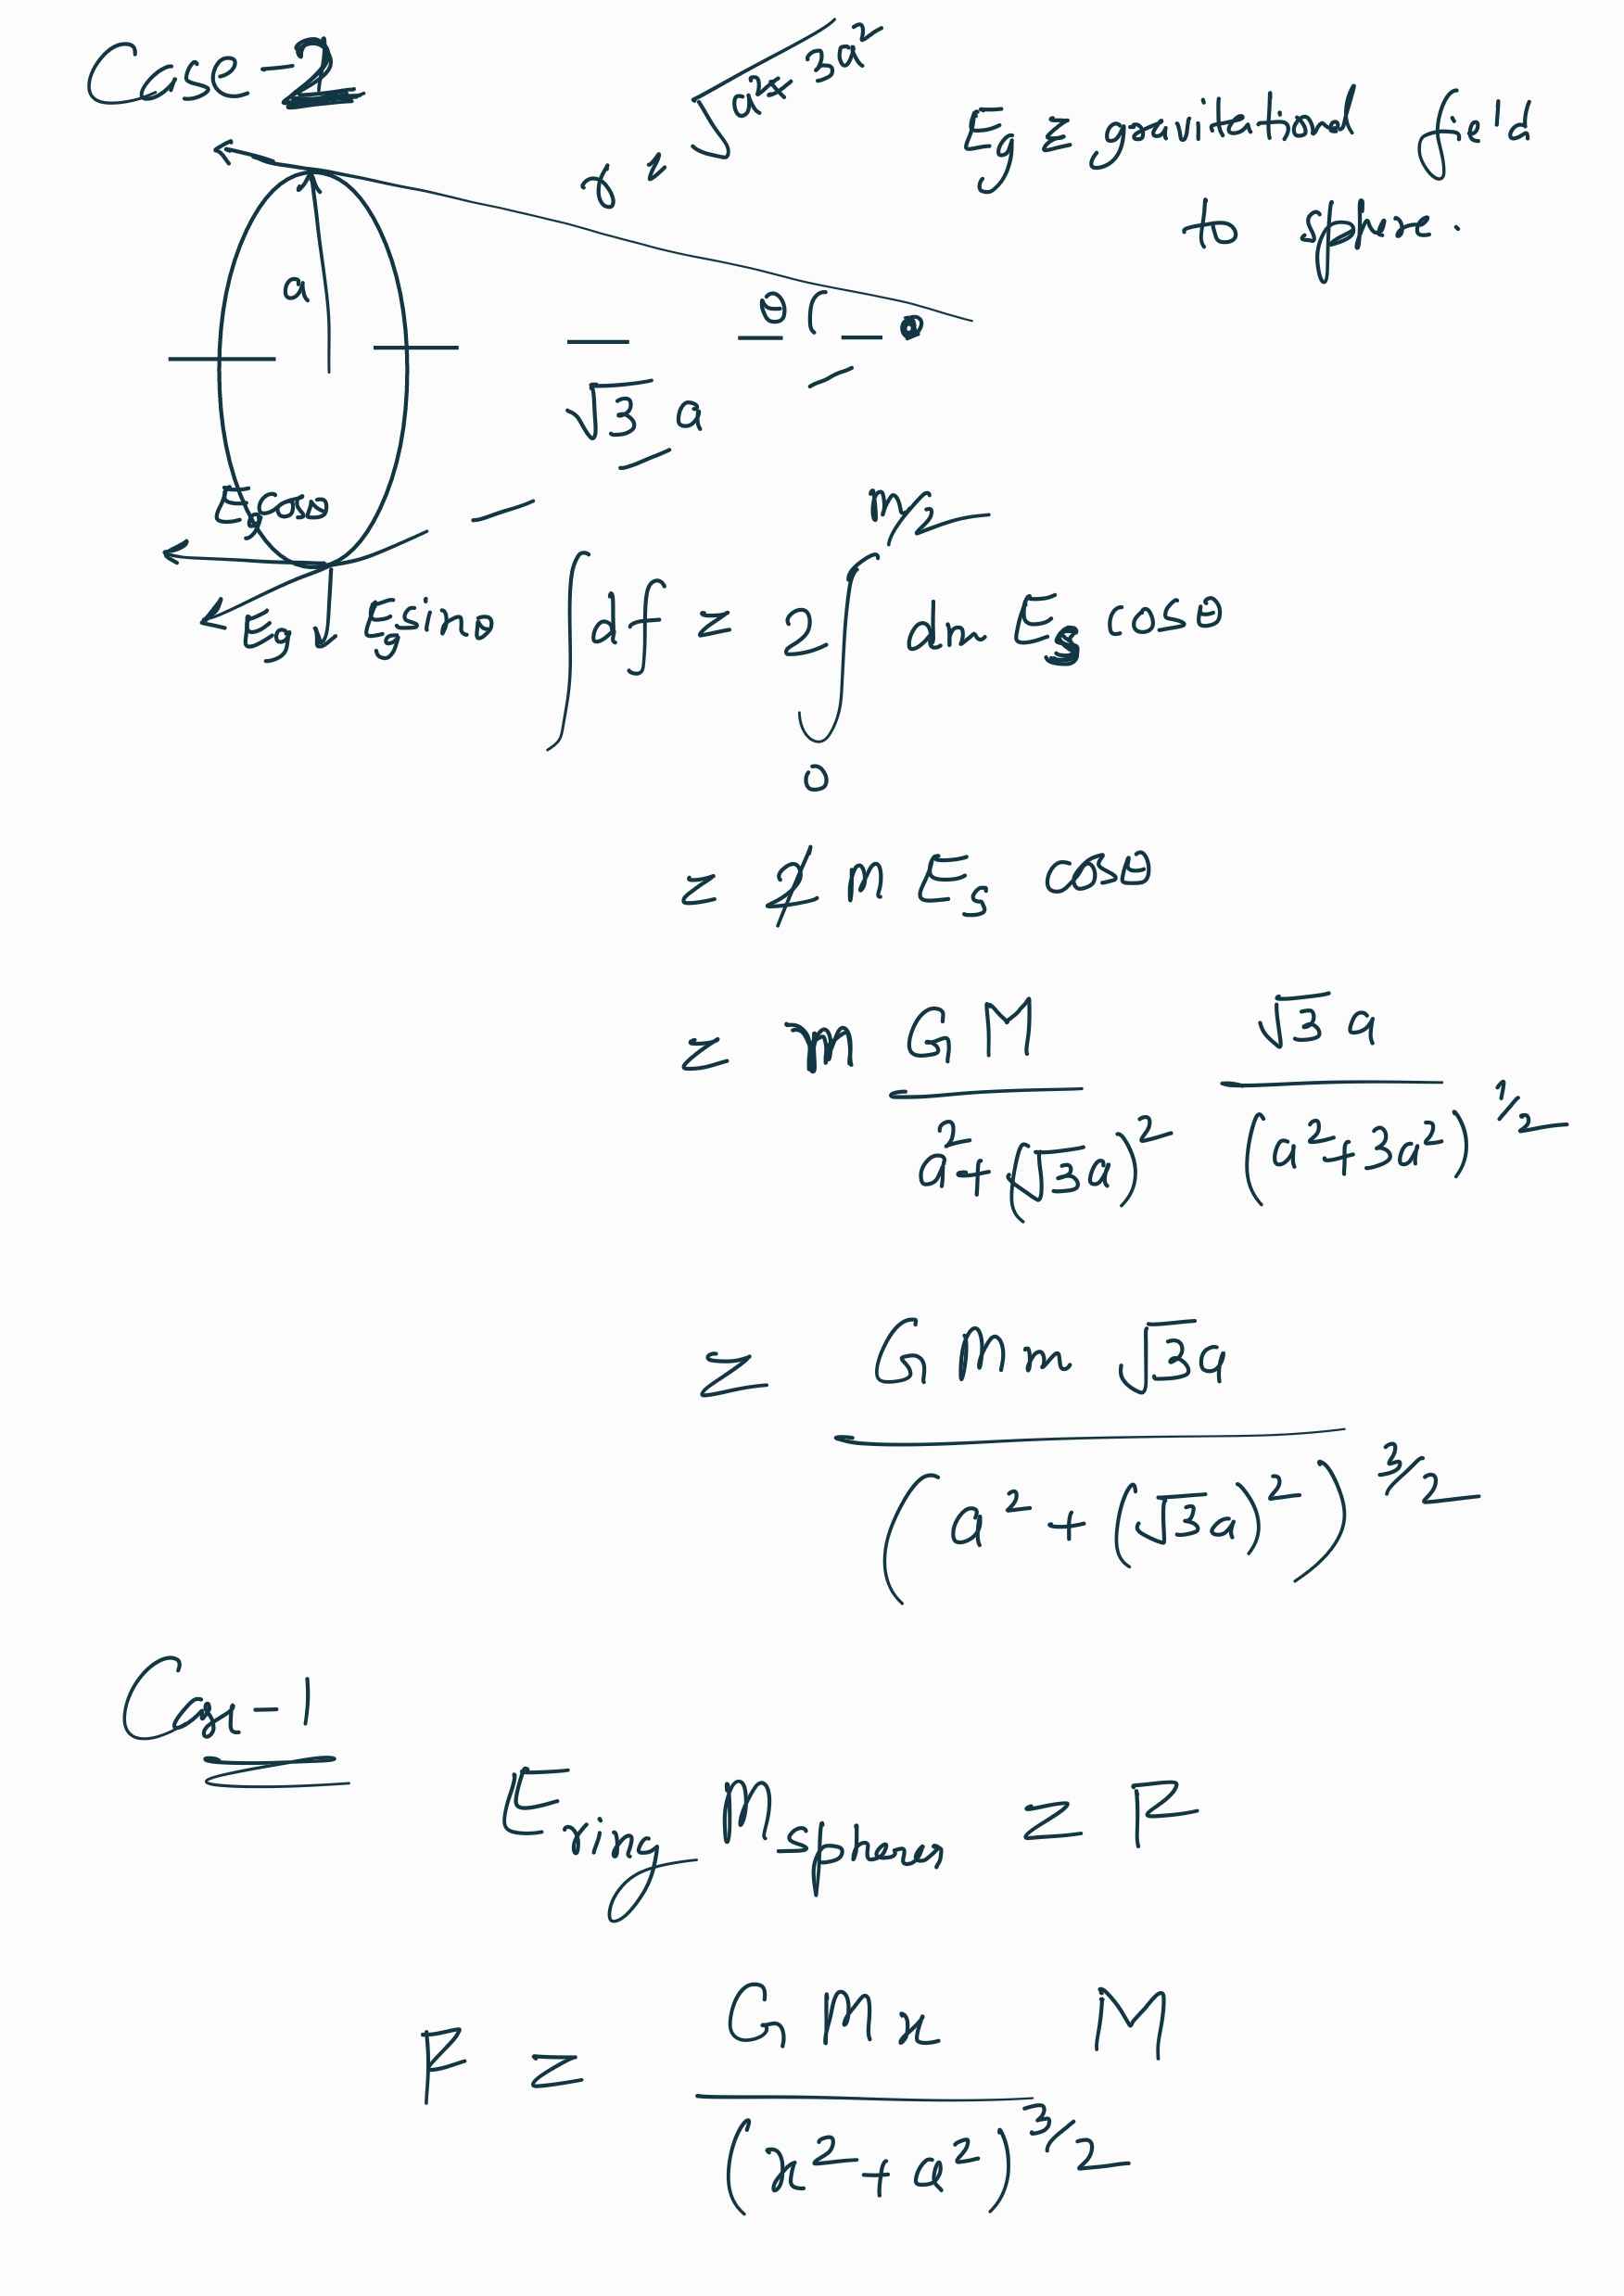 Case-2
r = √a²+3a²
Eg = gravitational field
to sphere.
a
θ
√3 a
Eg cosθ
Eg
Eg sinθ
∫df = 2 ∫₀^(m/2) dm Es cosθ
= 2 m Es cosθ
= m GM / (a²+(√3a)²) √3 a / (a²+3a²)^(1/2)
= G M m √3a / (a² + (√3a)²)^(3/2)
Case-1
E ring M sphere = F
F = G M x / (x²+a²)^(3/2) M